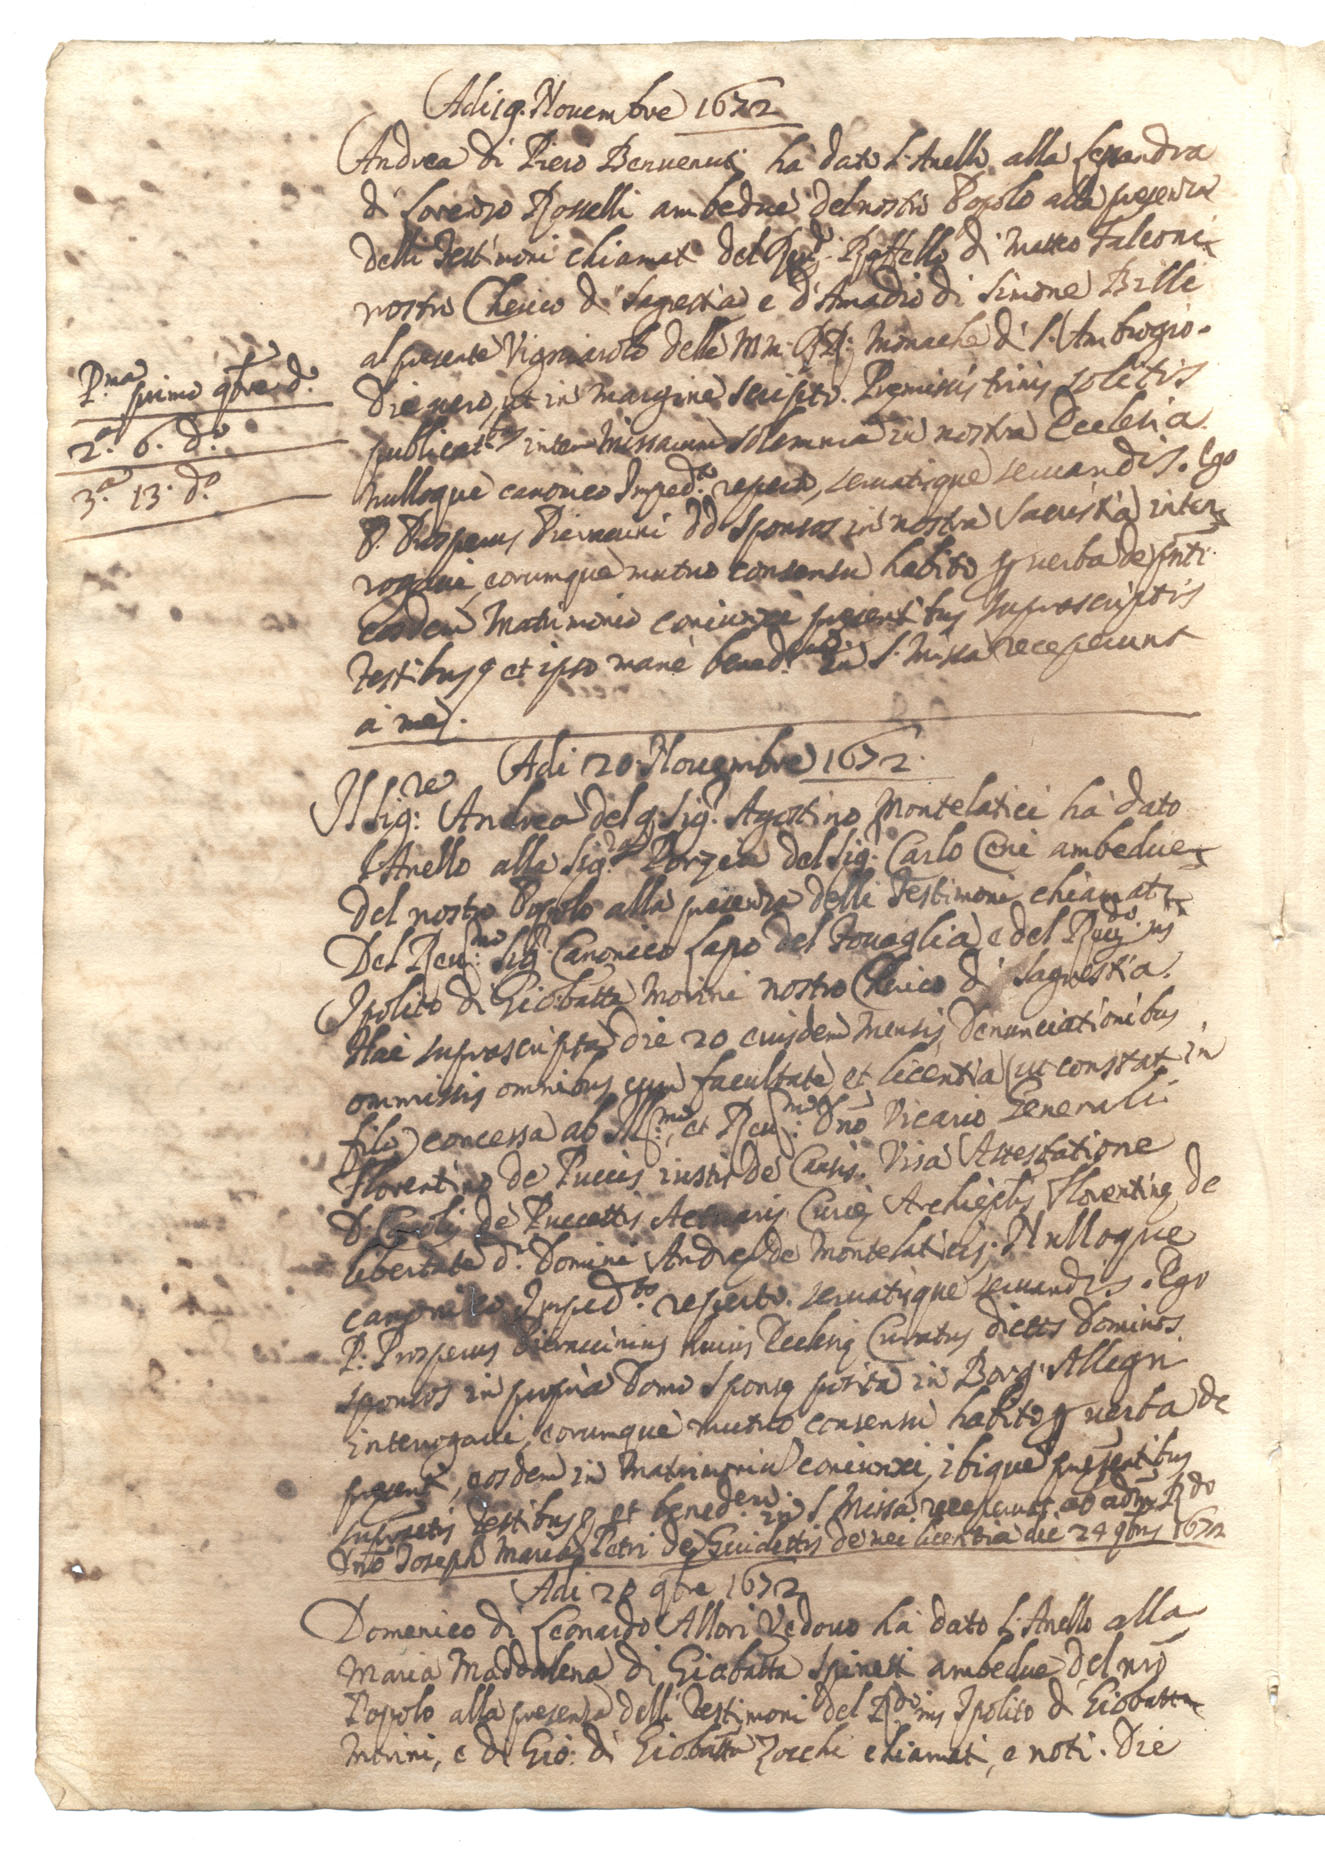 Adi 19. Novembre 1672
Andrea di Piero Benvenuti ha dato l'Anello alla Lessandra
di Lorenzo Rosselli ambedue del nostro Popolo alla presenza
delli Testimoni chiamati del Rev.do Raffello di Matteo Falconi
nostro Cherico di Sagrestia e d'Amadio di Simone Billi
al presente Vignaiuolo delle MM: RR: Monache di S. Ambrogio.
P.ma primo 9bre d.o
2.a 6. d.o
3.a 13. d.o
Die vero, ut in margine scripto. Premissis trinis solitis
publicat.bus inter Missarum solemnia in nostra Ecclesia.
nulloque canonico Imped.to reperto, servatisque servandis. Ego
P. Prosperus Pieraccini dd Sponsos in nostra Sacristia inter
rogavi, eorumque mutuo consensu habito p verba de pnti
eosdem Matrimonio coniunxi presentibus suprascriptis
Testibus, et ipso mane bened.nem in S. Missa receperunt
a me.
Adi 20. Novembre 1672
Il Sig.re Andrea del q. Sig.r Agostino Montelatici ha dato
l'Anello alla Sig.ra Porzia del Sig.r Carlo Ceni ambedue
del nostro Popolo alla presenza delli Testimoni chiamati
Del Rev.mo Sig.r Canonico Lapo del Tovaglia, e del Rev.do ms
Ipolito di Giobatta Morini nostro Cherico di Sagrestia.
Hac suprascripta die 20 eiusdem Mensis, Denunciationibus
ommissis omnibus cum facultate, et licentia (ut constat in
filo) concessa ab Ill.mo, et Rev.mo Dno Vicario Generali
Florentino de Puccis iustis de Causis. Visa Attestatione
D. Caroli de Puccettis Actuarij Curię Archieplis Florentinę de
libertate d.i Domini Andreę de Montelaticis, Nulloque
canonico Imped.to reperto. servatisque servandis. Ego
P. Prosperus Pieraccinius huius Ecclesię Curatus dictos Dominos
sponsos in propria Domo Sponsę posita in Borg. Allegri
interrogavi, eorumque mutuo consensu habito p verba de
present, eosdem in Matrimoniu coniunxi, ibique presentibus
supradictis Testibus, et bened.em in S. Missa receperunt ab adm. R.do
Dno Joseph Maria Petri de Guidettis de mei licentia die 24 9bris 1672
Adi 20 9bre 1672
Domenico di Leonardo Allori Vedovo ha dato l'Anello alla
Maria Maddalena di Giobatta Spinetti ambedue del nro
Popolo alla presenza delli Testimoni del R.do ms Ipolito di Giobatta
Morini, e di Gio: di Giobatta Zocchi chiamati, e noti. Die